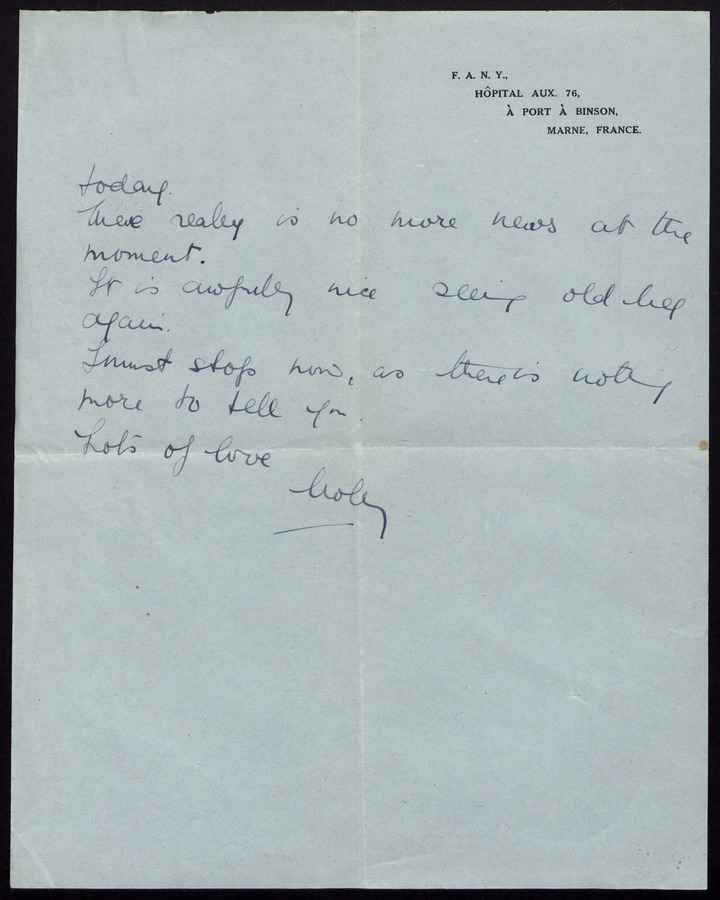 F. A. N. Y.,
HÔPITAL AUX. 76,
À PORT À BINSON,
MARNE, FRANCE.
today.
There really is no more news at the
moment.
It is awfully nice seeing old
again.
I must stop now, as there is nothing
more to tell you.
Lots of love
Molly